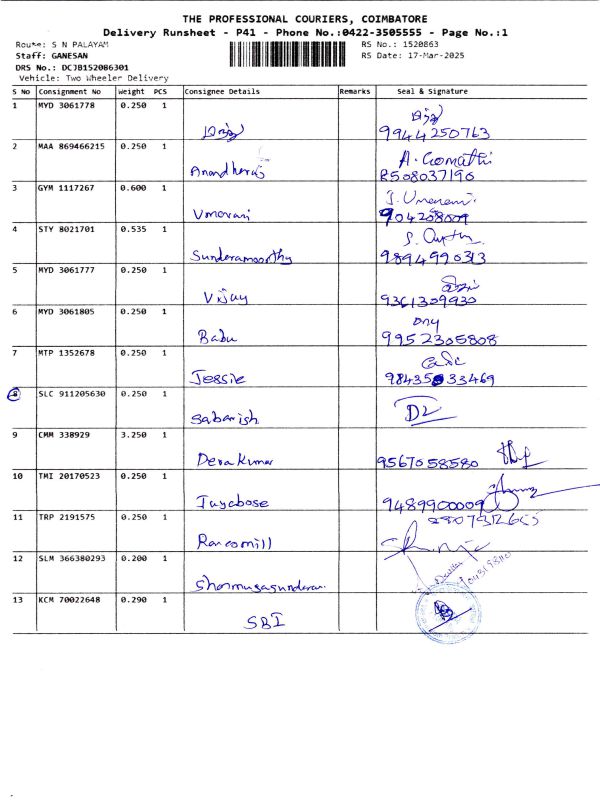 THE PROFESSIONAL COURIERS, COIMBATORE
Delivery Runsheet - P41 - Phone No.:0422-3505555 - Page No.:1
Route: S N PALAYAM RS No.: 1520863
Staff: GANESAN RS Date: 17-Mar-2025
DRS No.: DCJB152086301
Vehicle: Two Wheeler Delivery
S No Consignment No Weight PCS Consignee Details Remarks Seal & Signature
1 MYD 3061778 0.250 1
9944250763
2 MAA 869466215 0.250 1 A. Gomathi
Anandheraj 8508037196
3 GYM 1117267 0.600 1 J. Umarani
Umarani 904208009
4 STY 8021701 0.535 1
Sunderamoorthy 9894990313
5 MYD 3061777 0.250 1
Vijay 9361309930
6 MYD 3061805 0.250 1
Babu 9952305808
7 MTP 1352678 0.250 1
Jessie 98435 33469
8 SLC 911205630 0.250 1
Sabarish
9 CMM 338929 3.250 1
Devakumar 9567058580
10 TMI 20170523 0.250 1
Jayabose 9489900009
11 TRP 2191575 0.250 1
12 SLM 366380293 0.200 1
Shanmugasundaram
13 KCM 70022648 0.290 1
SBI